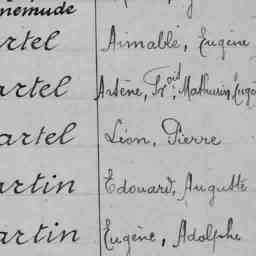 nemude
artel Aimable, Eugène
artel Arsène, Fr̃oid, Mathurin, Eugè
artel Léon, Pierre
artin Edouard, Auguste
artin Eugène, Adolphe